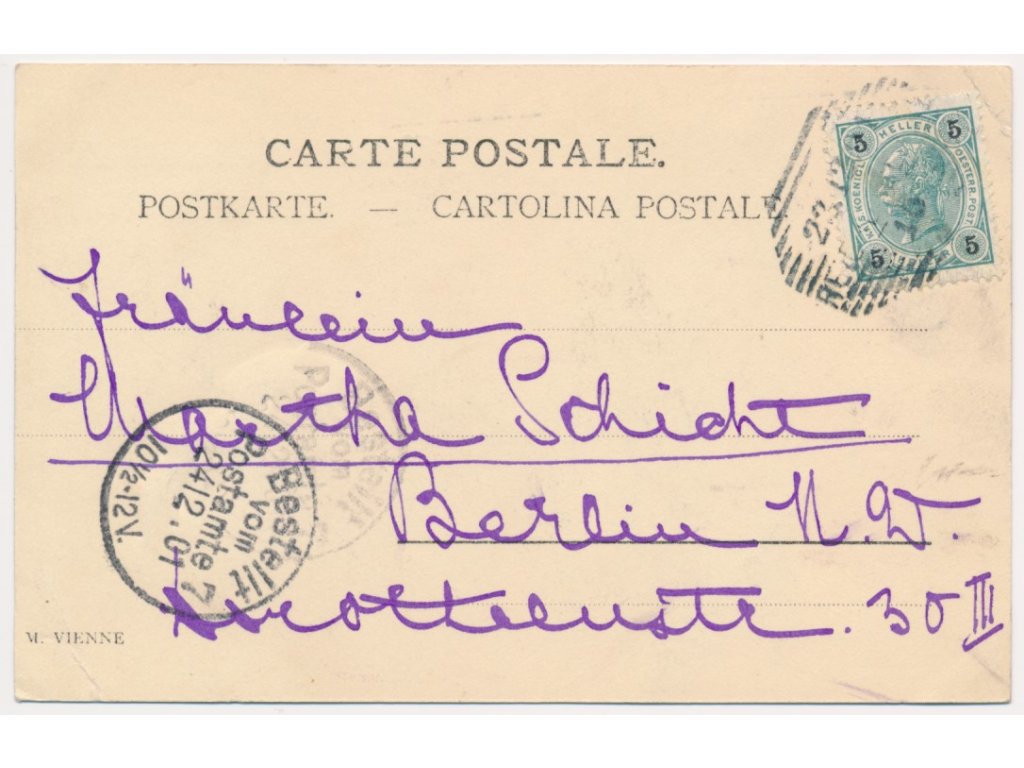 CARTE POSTALE.
POSTKARTE. — CARTOLINA POSTALE.
5 HELLER 5
KAIS. KOENIGL. OESTERR. POST
5 5
23
Fräulein
Martha Schicht
Berlin N.W.
30 III
Bestellt
vom
Postamte 7
24/2.01
10½-12V.
M. VIENNE